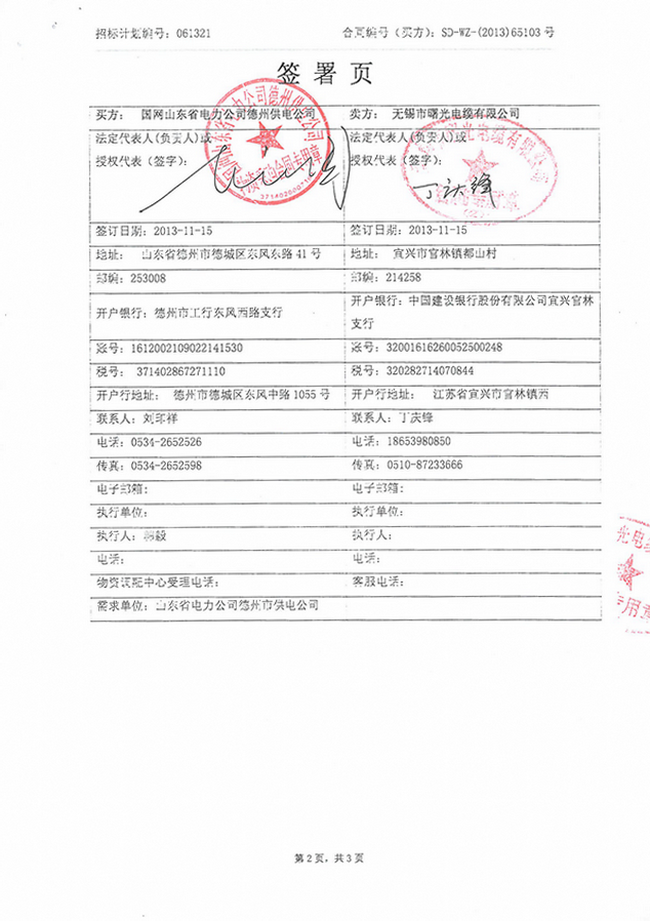 招标计划编号：061321 合同编号（买方）：SD-WZ-(2013)65103号
签署页
买方： 国网山东省电力公司德州供电公司 卖方： 无锡市曙光电缆有限公司
法定代表人(负责人)或 法定代表人(负责人)或
授权代表（签字）： 授权代表（签字）：
丁庆锋
签订日期：2013-11-15 签订日期：2013-11-15
地址： 山东省德州市德城区东风东路41号 地址： 宜兴市官林镇都山村
邮编：253008 邮编：214258
开户银行：德州市工行东风西路支行 开户银行：中国建设银行股份有限公司宜兴官林
支行
账号：1612002109022141530 账号：32001616260052500248
税号： 371402867271110 税号：320282714070844
开户行地址： 德州市德城区东风中路1055号 开户行地址： 江苏省宜兴市官林镇西
联系人：刘环祥 联系人：丁庆锋
电话：0534-2652526 电话：18653980850
传真：0534-2652598 传真：0510-87233666
电子邮箱： 电子邮箱：
执行单位： 执行单位：
执行人： 执行人：
电话： 电话：
物资调配中心受理电话： 客服电话：
需求单位：山东省电力公司德州市供电公司
光电缆
专用章
第2页，共3页